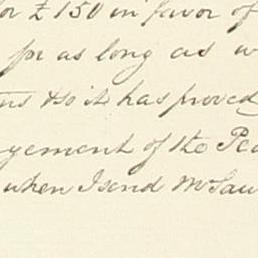 or £150 in favor of
for as long as w
ms & so it has proved
gement of the Pea
when I send Mr Law